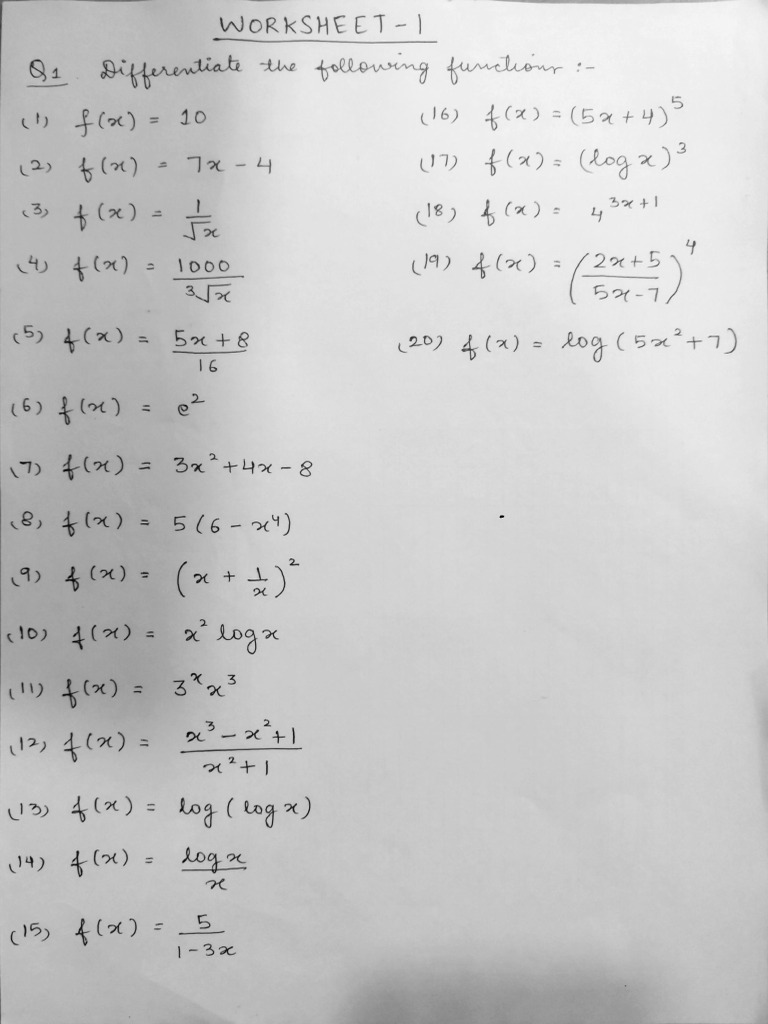 WORKSHEET-1
Q1 Differentiate the following functions :-
(1) f(x) = 10
(2) f(x) = 7x - 4
(3) f(x) = 1/√x
(4) f(x) = 1000/³√x
(5) f(x) = (5x + 8)/16
(6) f(x) = e²
(7) f(x) = 3x² + 4x - 8
(8) f(x) = 5(6 - x⁴)
(9) f(x) = (x + 1/x)²
(10) f(x) = x² log x
(11) f(x) = 3ˣ x³
(12) f(x) = (x³ - x² + 1)/(x² + 1)
(13) f(x) = log (log x)
(14) f(x) = log x/x
(15) f(x) = 5/(1 - 3x)
(16) f(x) = (5x + 4)⁵
(17) f(x) = (log x)³
(18) f(x) = 4^(3x+1)
(19) f(x) = ((2x + 5)/(5x - 7))⁴
(20) f(x) = log (5x² + 7)